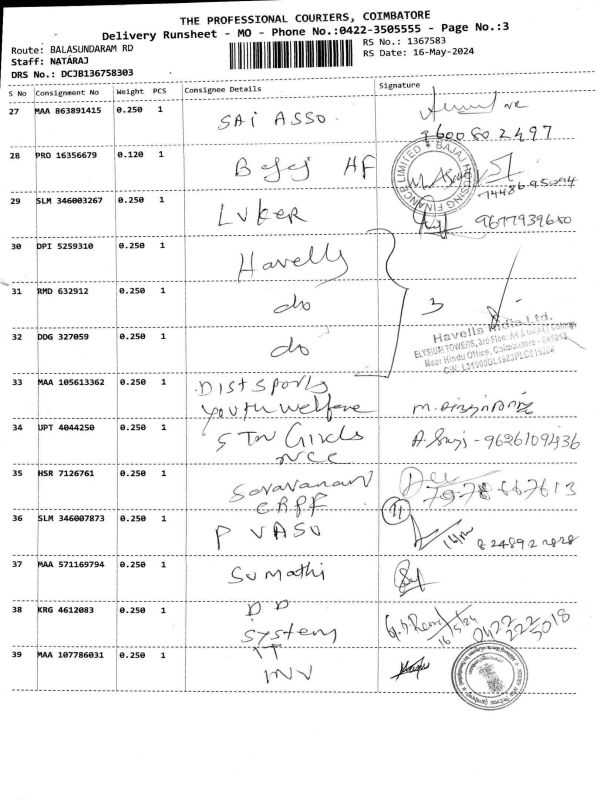 THE PROFESSIONAL COURIERS, COIMBATORE
Delivery Runsheet - MO - Phone No.:0422-3505555 - Page No.:3
Route: BALASUNDARAM RD
RS No.: 1367583
Staff: NATARAJ
RS Date: 16-May-2024
DRS No.: DCJB136758303
S No Consignment No Weight PCS Consignee Details Signature
27 MAA 863891415 0.250 1 SAI ASSO.
9600802497
28 PRO 16356679 0.120 1 Bajaj HF
BAJAJ HOUSING FINANCE LIMITED
29 SLM 346003267 0.250 1 LUKER 9677939680
30 DPI 5259310 0.250 1 Havells
31 RMD 632912 0.250 1 do 3
32 DDG 327059 0.250 1 do
Havells India Ltd.
ELYSIUM TOWERS, 3rd Floor
Near Hindu Office, Coimbatore - 641018
33 MAA 105613362 0.250 1 Dist sports
youth welfare
34 UPT 4044250 0.250 1 5 TN Girls A. - 9626109436
NCC
35 HSR 7126761 0.250 1 Saravanan
CRPF
36 SLM 346007873 0.250 1 P VASU 11
37 MAA 571169794 0.250 1 Sumathi
38 KRG 4612083 0.250 1 D D
System 16/5/24 0422 222 3018
39 MAA 107786031 0.250 1 IT
INV